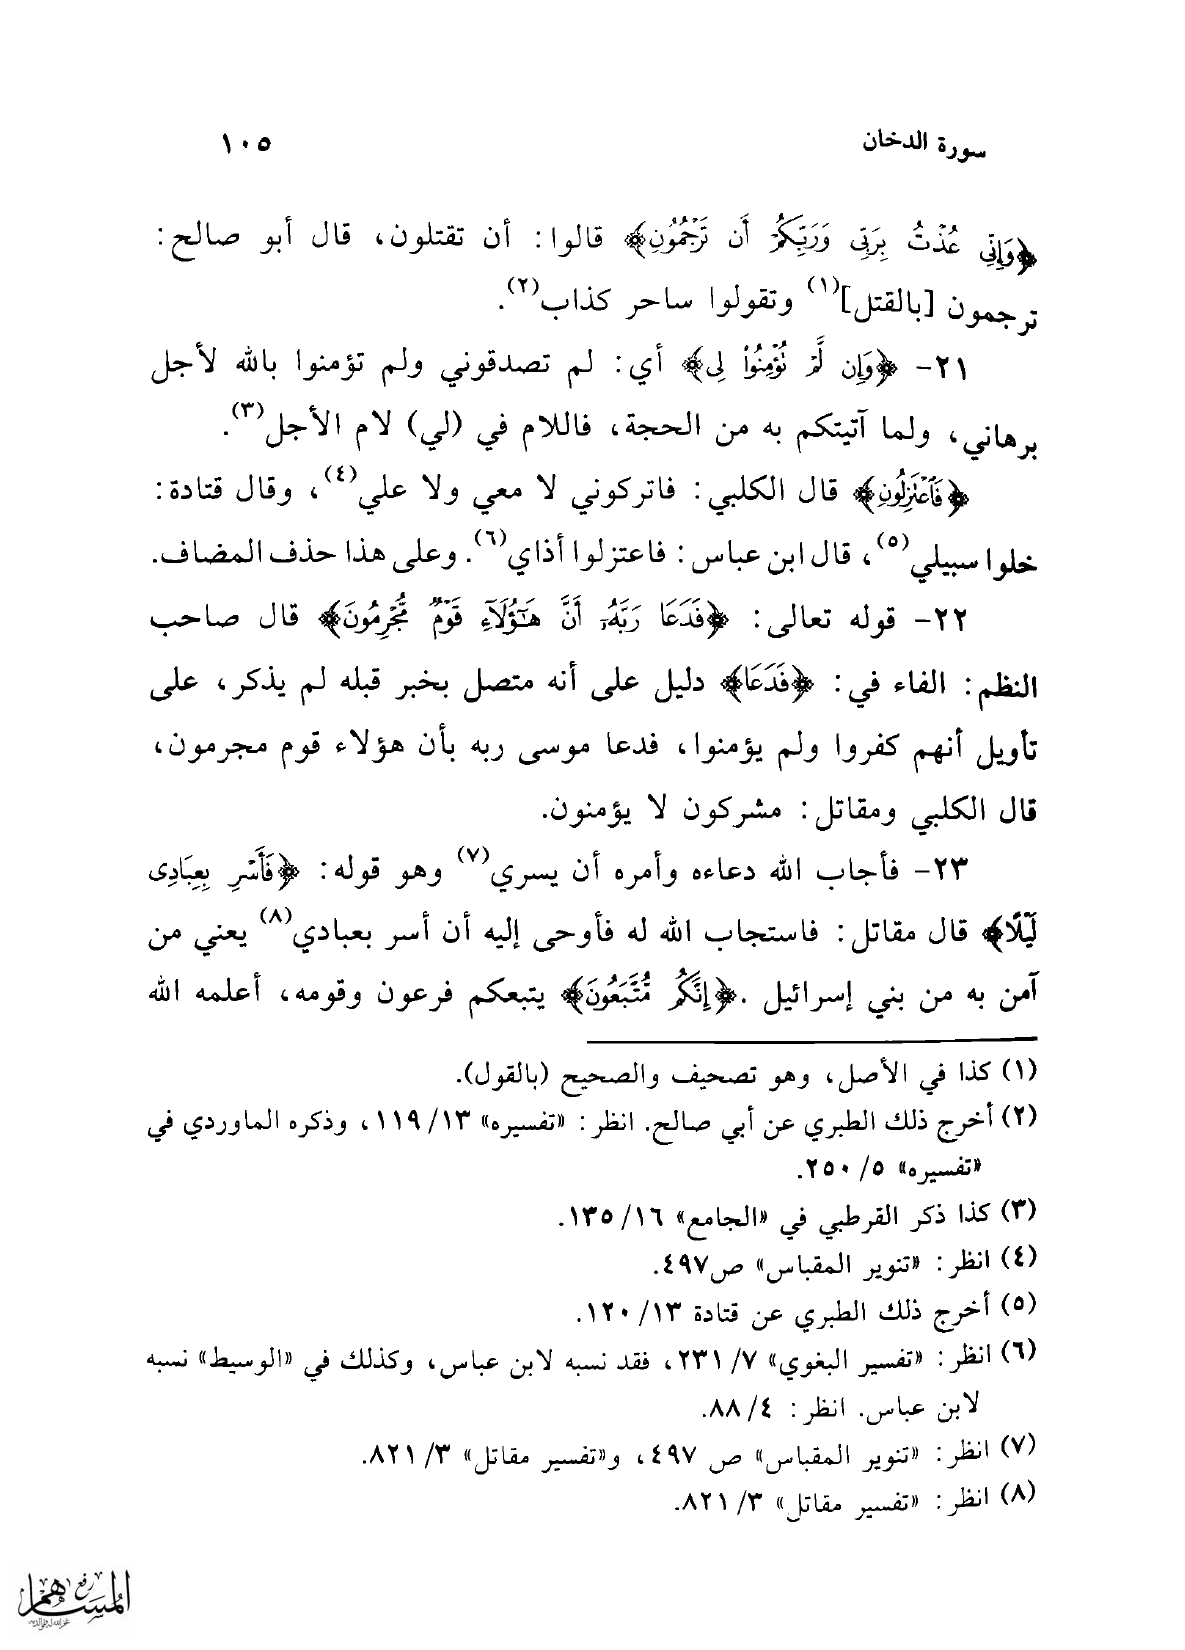 سورة الدخان ١٠٥
﴿وَإِنِّي عُذْتُ بِرَبِّي وَرَبِّكُمْ أَن تَرْجُمُونِ﴾ قالوا: أن تقتلون، قال أبو صالح:
ترجمون [بالقتل](١) وتقولوا ساحر كذاب(٢).
٢١- ﴿وَإِن لَّمْ تُؤْمِنُواْ لِي﴾ أي: لم تصدقوني ولم تؤمنوا بالله لأجل
برهاني، ولما آتيتكم به من الحجة، فاللام في (لي) لام الأجل(٣).
﴿فَاعْتَزِلُونِ﴾ قال الكلبي: فاتركوني لا معي ولا علي(٤)، وقال قتادة:
خلوا سبيلي(٥)، قال ابن عباس: فاعتزلوا أذاي(٦). وعلى هذا حذف المضاف.
٢٢- قوله تعالى: ﴿فَدَعَا رَبَّهُۥ أَنَّ هَٰٓؤُلَآءِ قَوْمٌ مُّجْرِمُونَ﴾ قال صاحب
النظم: الفاء في: ﴿فَدَعَا﴾ دليل على أنه متصل بخبر قبله لم يذكر، على
تأويل أنهم كفروا ولم يؤمنوا، فدعا موسى ربه بأن هؤلاء قوم مجرمون،
قال الكلبي ومقاتل: مشركون لا يؤمنون.
٢٣- فأجاب الله دعاءه وأمره أن يسري(٧) وهو قوله: ﴿فَأَسْرِ بِعِبَادِى
لَيْلًا﴾ قال مقاتل: فاستجاب الله له فأوحى إليه أن أسر بعبادي(٨) يعني من
آمن به من بني إسرائيل .﴿إِنَّكُم مُّتَّبَعُونَ﴾ يتبعكم فرعون وقومه، أعلمه الله
(١) كذا في الأصل، وهو تصحيف والصحيح (بالقول).
(٢) أخرج ذلك الطبري عن أبي صالح. انظر: «تفسيره» ١٣/ ١١٩، وذكره الماوردي في
«تفسيره» ٥/ ٢٥٠.
(٣) كذا ذكر القرطبي في «الجامع» ١٦/ ١٣٥.
(٤) انظر: «تنوير المقباس» ص٤٩٧.
(٥) أخرج ذلك الطبري عن قتادة ١٣/ ١٢٠.
(٦) انظر: «تفسير البغوي» ٧/ ٢٣١، فقد نسبه لابن عباس، وكذلك في «الوسيط» نسبه
لابن عباس. انظر: ٤/ ٨٨.
(٧) انظر: «تنوير المقباس» ص ٤٩٧، و«تفسير مقاتل» ٣/ ٨٢١.
(٨) انظر: «تفسير مقاتل» ٣/ ٨٢١.